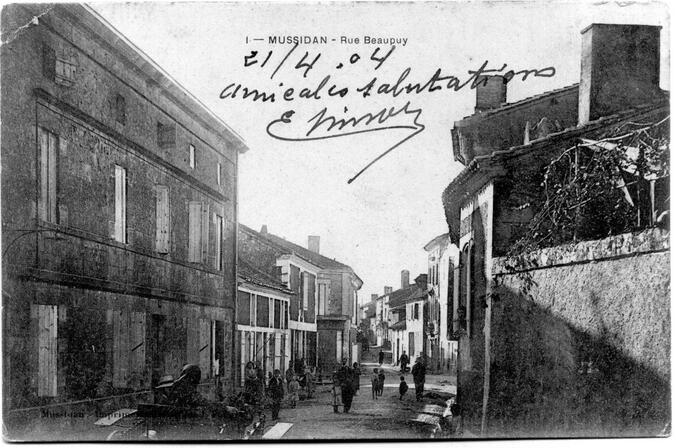 1 — MUSSIDAN - Rue Beaupuy
21/4.04
amicales salutations
Mussidan - Imprim